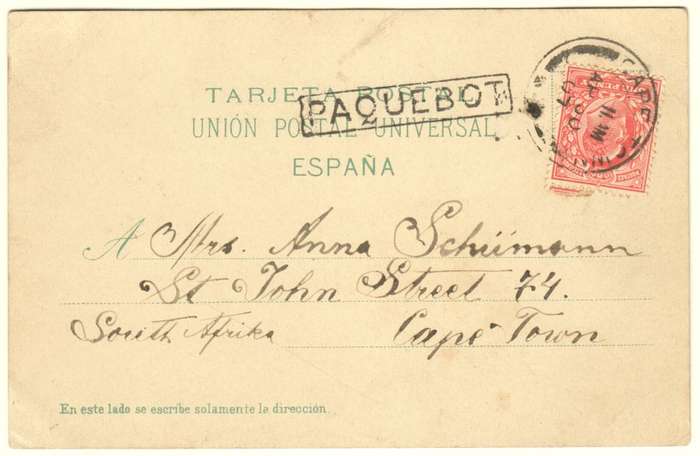 TARJETA POSTAL
PAQUEBOT
UNIÓN POSTAL UNIVERSAL
ESPAÑA
CAPE TOWN
A Mrs. Anna Schümann
St John Street 74.
South Afrika Cape Town
En este lado se escribe solamente la dirección.